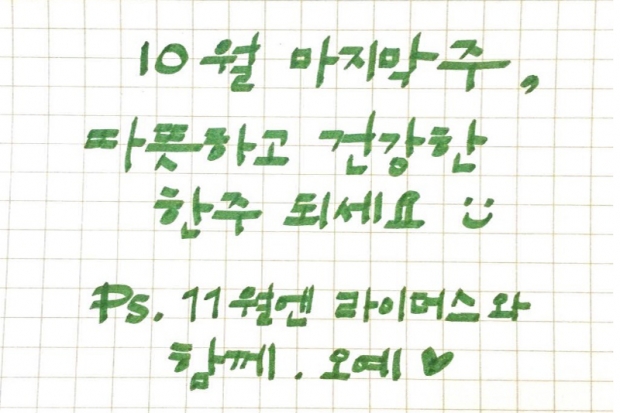 10월 마지막주,
따뜻하고 건강한
한주 되세요 :)
Ps. 11월엔 라이머스와
함께. 오예♥